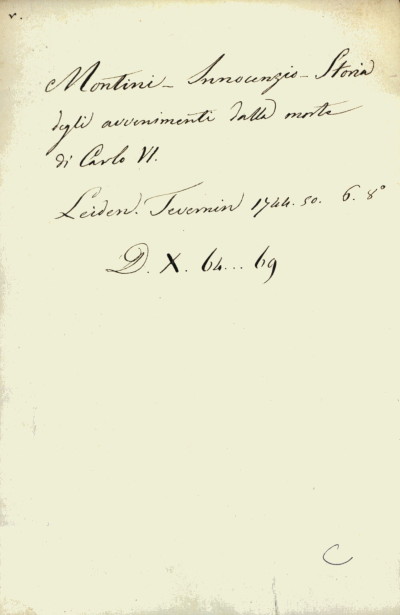 Montini - Innocenzio - Storia
degli avvenimenti dalla morte
di Carlo VI.
Leiden. Tevernin 1744. 50. 6. 8°
D. X. 64... 69
C